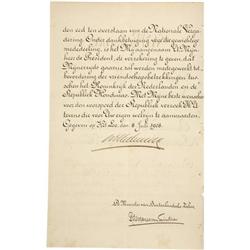 den eed ten overstaan van de Nationale Verga-
dering. Onder dankbetuiging voor die gewaardeerde
mededeeling, is het Mij aangenaam U, Mijn-
heer de President, de verzekering te geven dat
Mijnerzijds gaarne zal worden medegewerkt tot
bevordering der vriendschapsbetrekkingen tus-
schen het Koninkrijk der Nederlanden en de
Republiek Honduras. Met Mijne beste wenschen
voor den voorspoed der Republiek verzoek Ik U
tevens die voor Uw eigen welzijn te aanvaarden.
Gegeven op Het Loo, den 8 Juli 1908.
Wilhelmina
De Minister van Buitenlandsche Zaken,